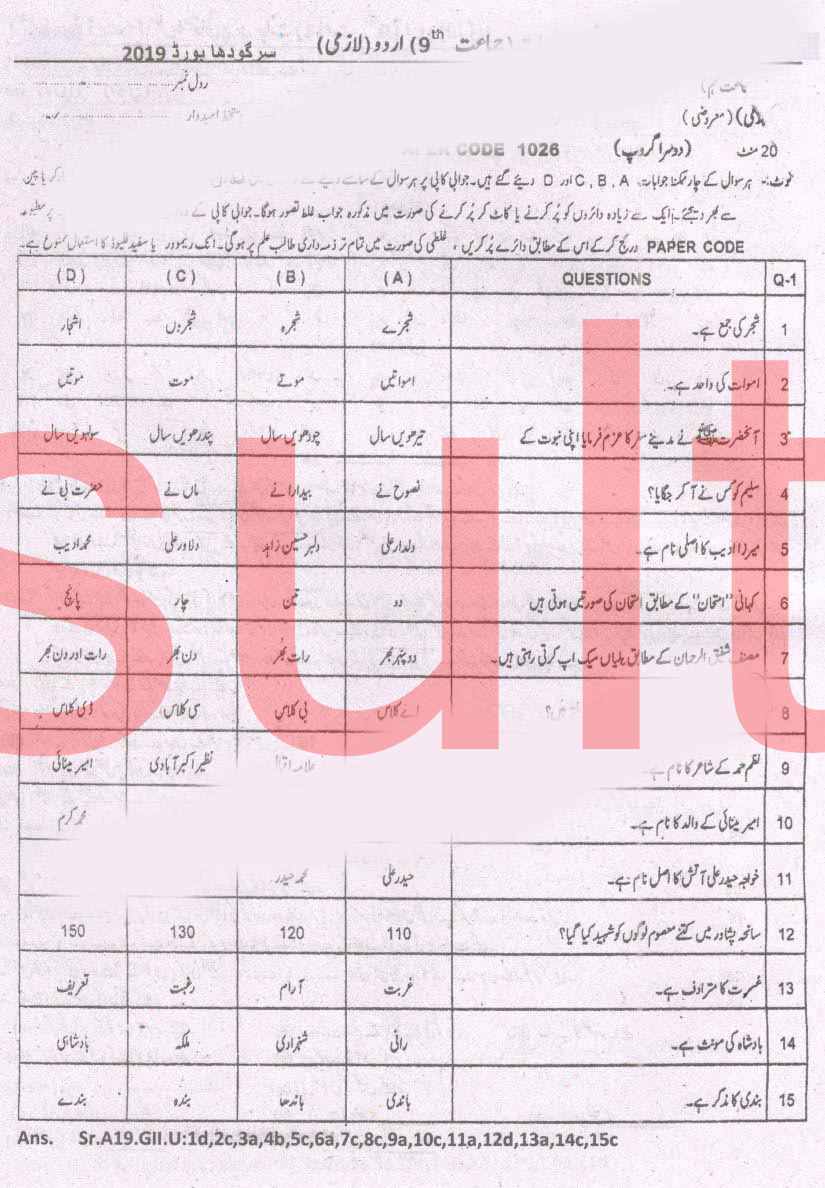 جماعت 9th) اردو (لازمی) سرگودھا بورڈ 2019
رول نمبر
(معروضی)
20 منٹ (دوسرا گروپ) PAPER CODE 1026
نوٹ:- ہر سوال کے چار ممکنہ جوابات A , B , C اور D دیئے گئے ہیں۔ جوابی کاپی پر ہر سوال کے سامنے دیئے گئے
سے بھر دیجئے۔ ایک سے زیادہ دائروں کو پُر کرنے یا کاٹ کر پُر کرنے کی صورت میں مذکورہ جواب غلط تصور ہوگا۔ جوابی کاپی کے پر مطبوعہ
PAPER CODE درج کر کے اس کے مطابق دائرے پُر کریں ، غلطی کی صورت میں تمام تر ذمہ داری طالب علم پر ہوگی۔ انک ریموور یا سفید فلیوڈ کا استعمال ممنوع ہے۔
Q-1 QUESTIONS (A) (B) (C) (D)
1 شجر کی جمع ہے۔ شجرے شجرہ شجروں اشجار
2 اموات کی واحد ہے۔ امواتیں موتے موت موتیں
3 آنحضرت ﷺ نے مدینے سفر کا عزم فرمایا اپنی نبوت کے تیرھویں سال چودھویں سال پندرھویں سال سولہویں سال
4 سلیم کو کس نے آ کر جگایا؟ نصوح نے بیدارا نے ماں نے حضرت بی نے
5 میرزا ادیب کا اصلی نام ہے۔ دلدار علی دلبر حسین زاہد دلاور علی محمد ادیب
6 کہانی "امتحان" کے مطابق امتحان کی صورتیں ہوتی ہیں دو تین چار پانچ
7 مصنف شفیق الرحمان کے مطابق بلیاں میک اپ کرتی رہتی ہیں۔ دوپہر بھر رات بھر دن بھر رات اور دن بھر
8 اے کلاس بی کلاس سی کلاس ڈی کلاس
9 نظم حمد کے شاعر کا نام ہے۔ علامہ اقبال نظیر اکبر آبادی امیر مینائی
10 امیر مینائی کے والد کا نام ہے۔ محمد کرم
11 خواجہ حیدر علی آتش کا اصل نام ہے۔ حیدر علی محمد حیدر
12 سانحہ پشاور میں کتنے معصوم لوگوں کو شہید کیا گیا؟ 110 120 130 150
13 غربت آرام رغبت تعریف
14 بادشاہ کی مونث ہے۔ رانی شہزادی ملکہ بادشاہی
15 بندی کا مذکر ہے۔ باندی باندھا بندہ بندے
Ans. Sr.A19.GII.U:1d,2c,3a,4b,5c,6a,7c,8c,9a,10c,11a,12d,13a,14c,15c
sult